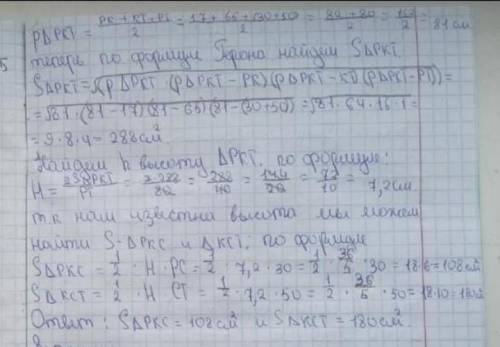 P△PKT = (PK + KT + PT)/2 = (17 + 65 + 30 + 50)/2 = (82 + 80)/2 = 162/2 = 81 см
теперь по формуле Герона найдем S△PKT.
S△PKT = √(P△PKT · (P△PKT − PK)(P△PKT − KT)(P△PKT − PT)) =
= √81 · (81 − 17)(81 − 65)(81 − (30+50)) = √81 · 64 · 16 · 1 =
= 9 · 8 · 4 = 288 см²
Найдем h высоту △PKT, по формуле:
H = 2S△PKT/PT = 2·288/80 = 288/40 = 144/20 = 72/10 = 7,2 см
т.к нам известна высота мы можем
найти S △PKC и △KCT. по формуле
S△PKC = 1/2 · H · PC = 1/2 · 7,2 · 30 = 1/2 · 36/5 · 30 = 18·6 = 108 см²
S△KCT = 1/2 · H CT = 1/2 · 7,2 · 50 = 1/2 · 36/5 · 50 = 18·10 = 180
Ответ: S△PKC = 108 см² и S△KCT = 180 см².